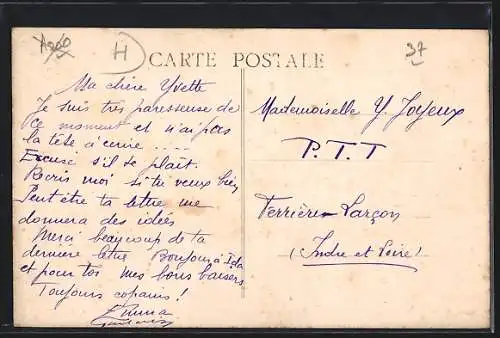 H
CARTE POSTALE
37
Ma chère Yvette
Je suis très paresseuse de
ce moment et n'ai pas
la tête à écrire ....
Excuse s'il te plaît.
Ecris moi si tu veux bien
Peut être ta lettre me
donnera des idées
Merci beaucoup de ta
dernière lettre Bonjour à Ida
et pour toi mes bons baisers
Toujours copains !
Emma
Mademoiselle Y. Joyeux
P.T.T
Ferrière-Larçon
(Indre et Loire)